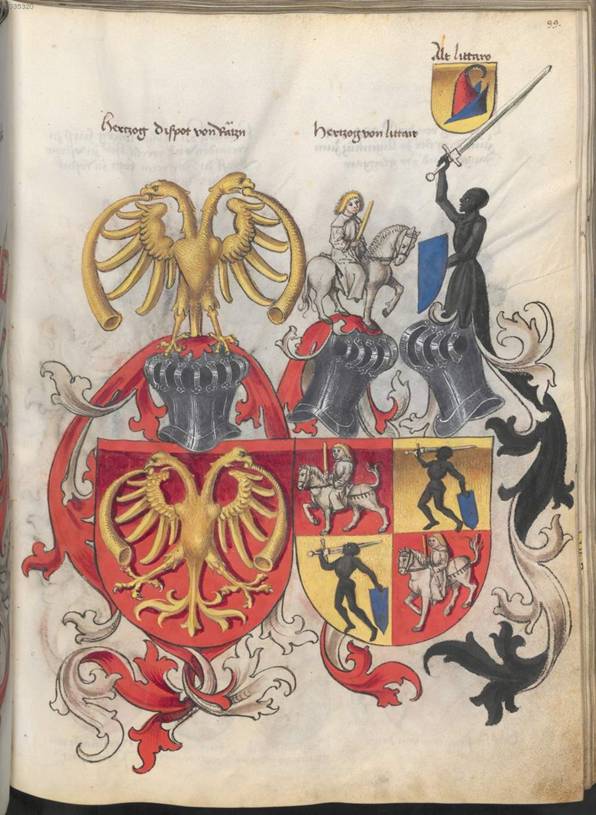 99.
Alt littaw
Hertzog dispot von Rätzn
Hertzog von littaw